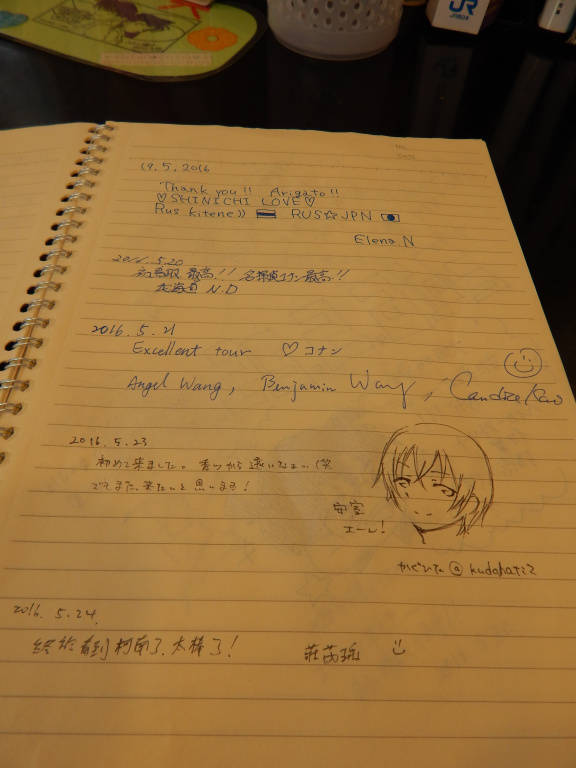 JR
19.5.2016
Thank you!! Arigato!!
♡SHINICHI LOVE♡
Rus kitene)) RUS☆JPN
Elena.N
2016.5.20
最高!! 名探偵コナン最高!!
北海道 N.D
2016.5.21
Excellent tour ♡コナン
Angel Wang, Benjamin Wang, Candice
2016.5.23
初めて来ました。 遠いなぁ、(笑
でもまた、来たいと思います!
安室
@kudohat
2016.5.24.
終於看到柯南了、太棒了!